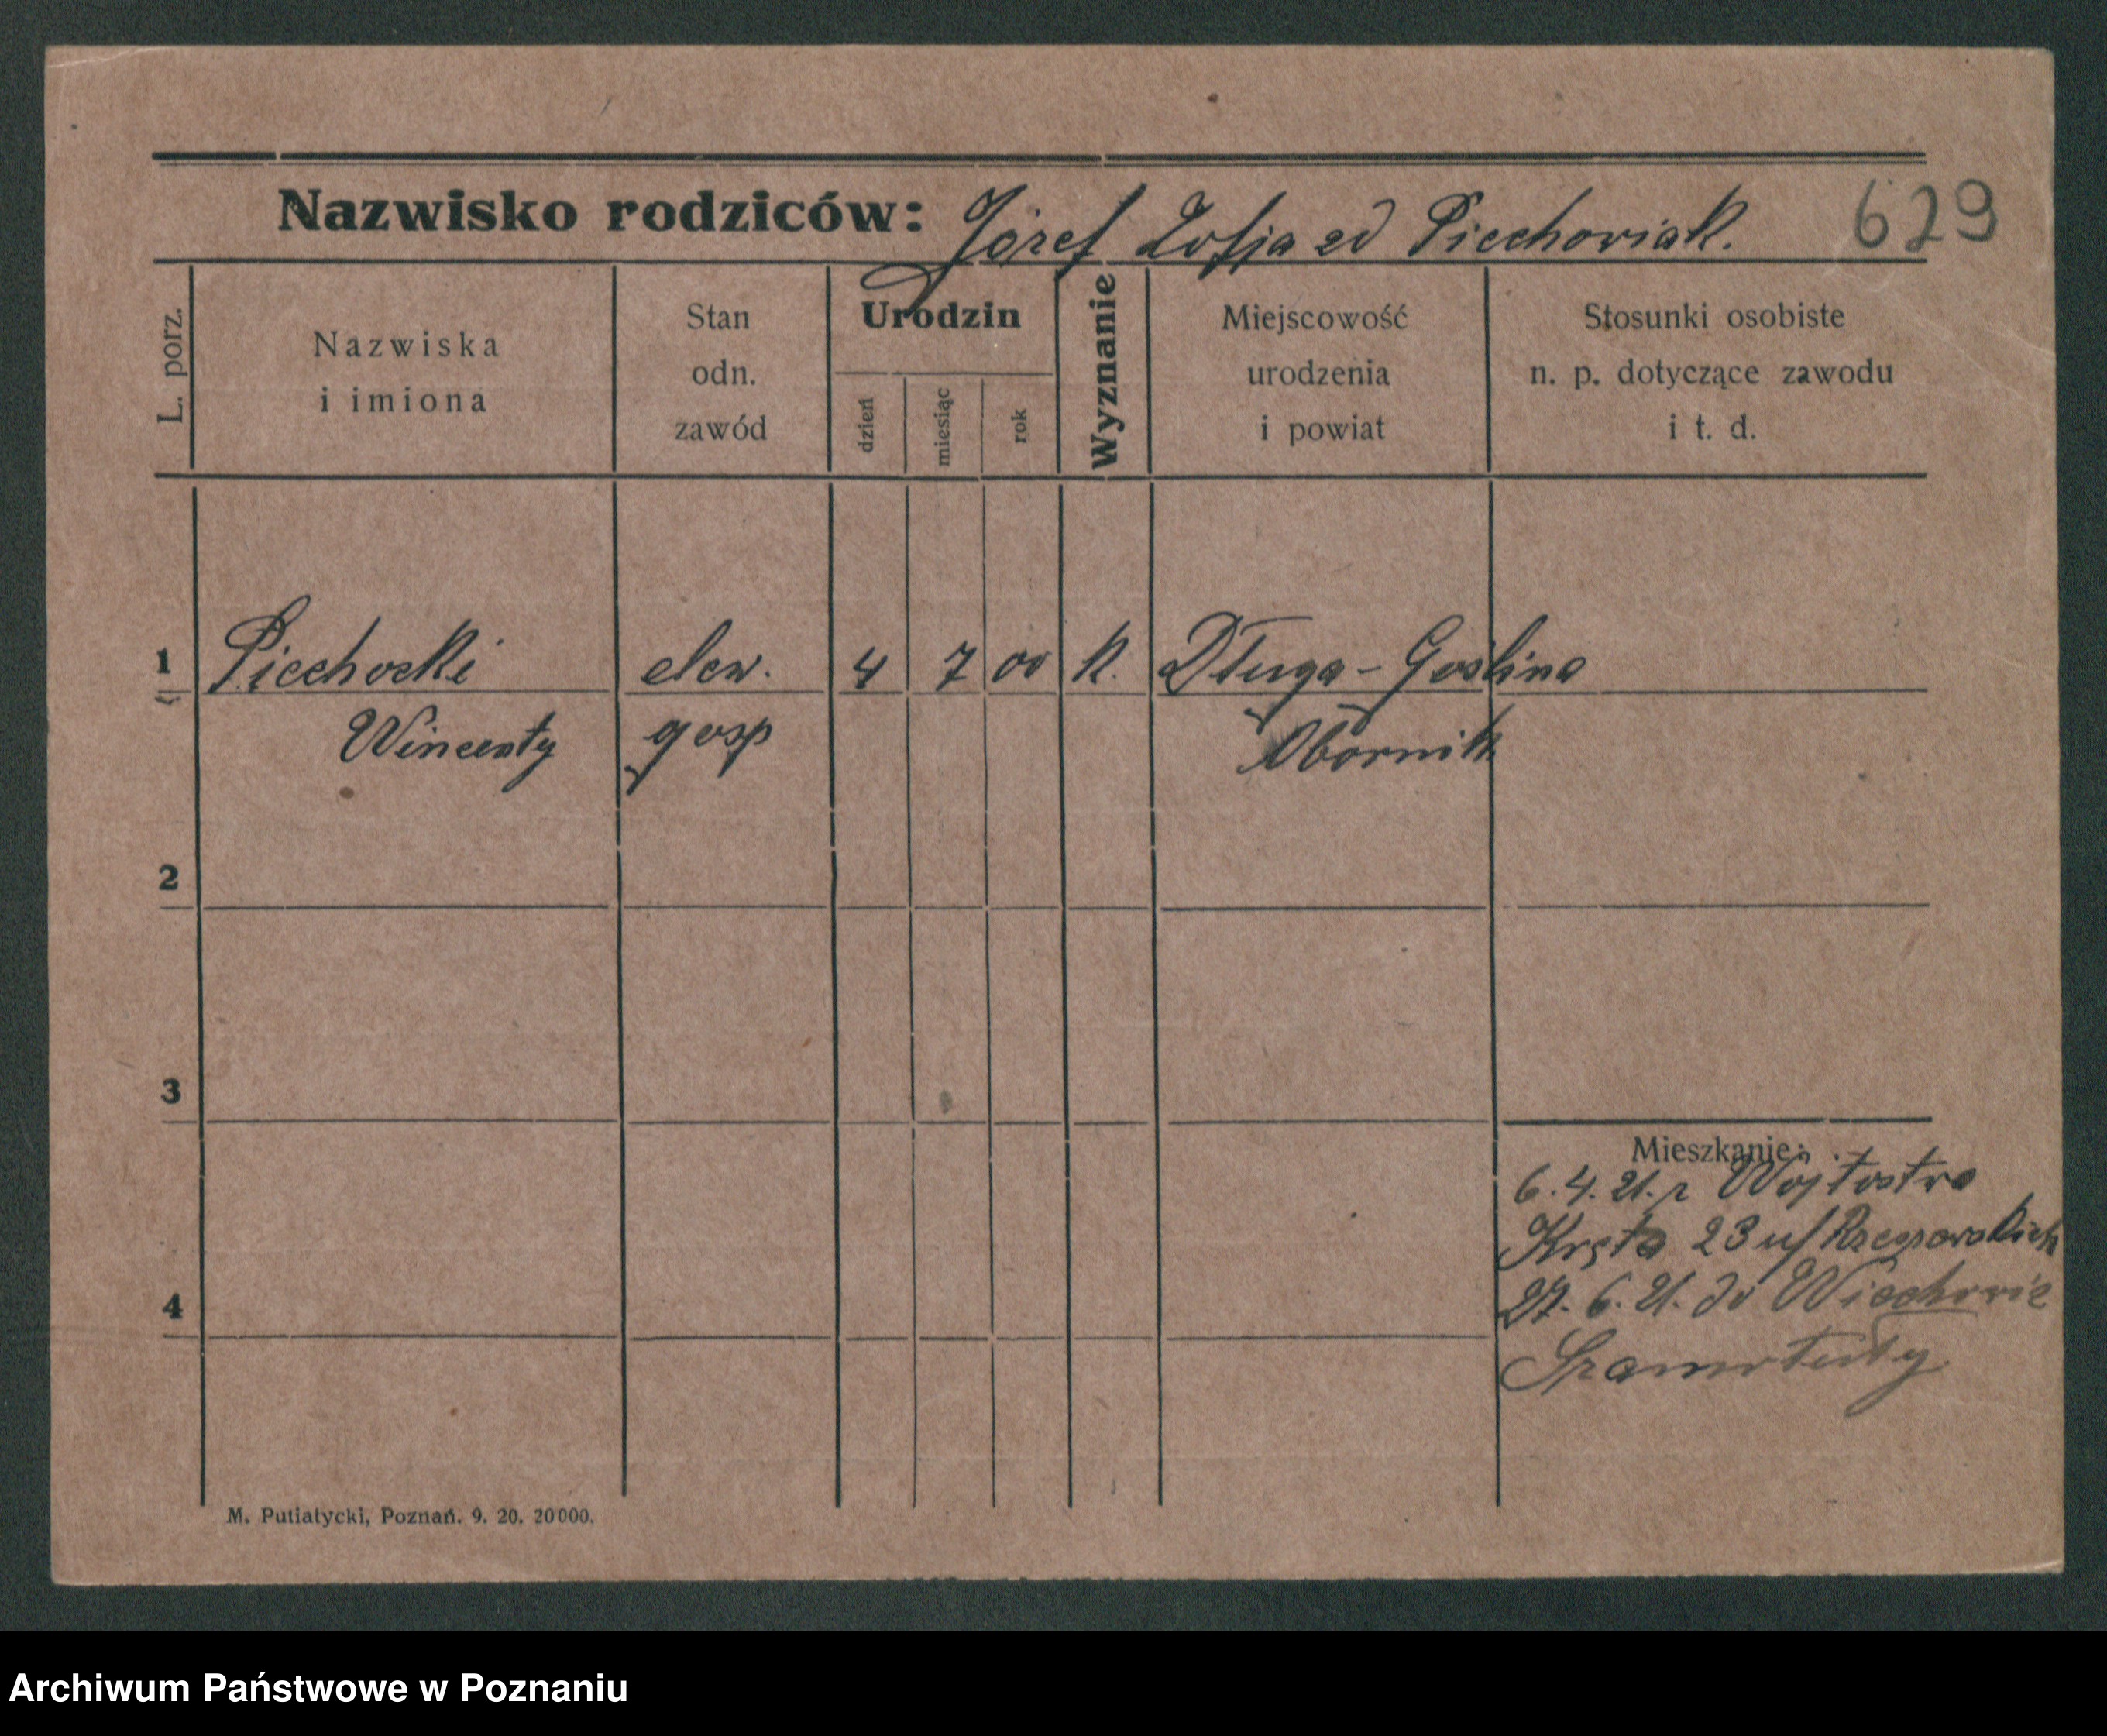 Nazwisko rodziców: Józef Zofja zd Piechowiak. 629
L. porz.
Nazwiska
i imiona
Stan
odn.
zawód
Urodzin
dzień
miesiąc
rok
Wyznanie
Miejscowość
urodzenia
i powiat
Stosunki osobiste
n. p. dotyczące zawodu
i t. d.
1 Piechocki elew. 4 7 00 k. Długa-Goślina
Wincenty gosp Obornik
2
3
4
Mieszkanie:
6. 4. 21. z Wójtostwa
Kręta 23 u/
27. 6. 21. do
Szamotuły
M. Putiatycki, Poznań. 9. 20. 20000.
Archiwum Państwowe w Poznaniu